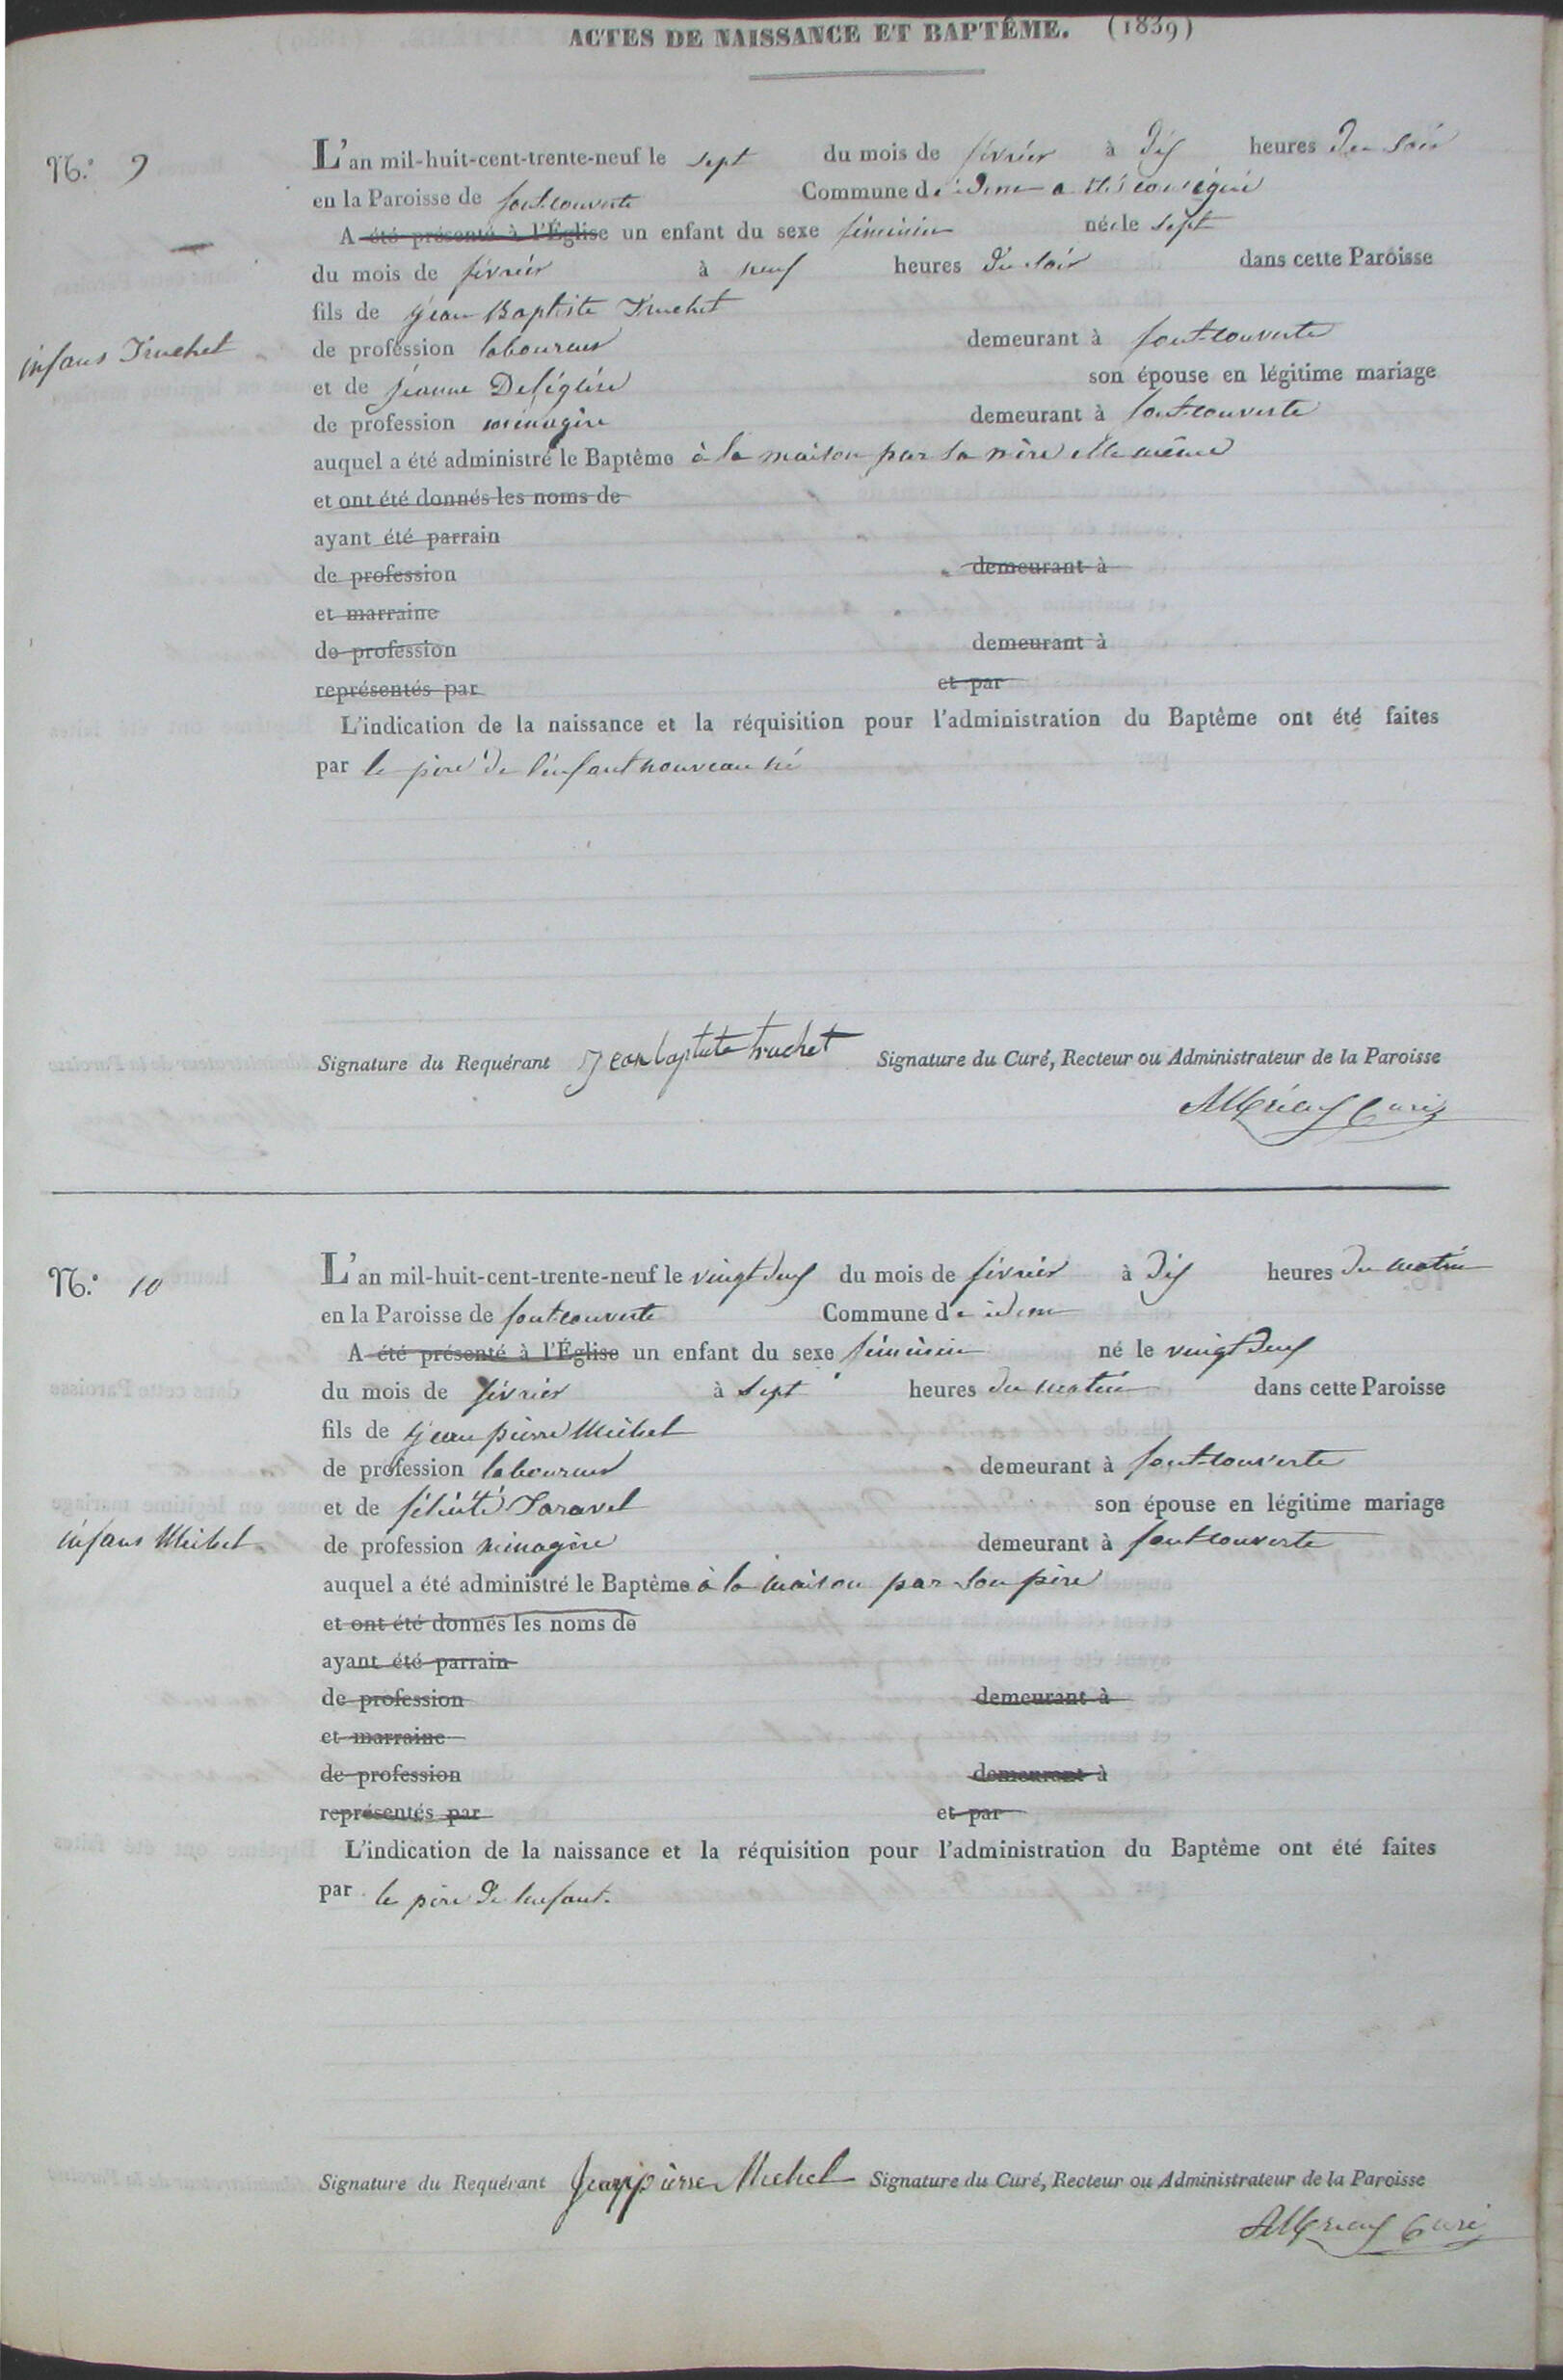 ACTES DE NAISSANCE ET BAPTÊME. (1839)
N.º 9
L'an mil-huit-cent-trente-neuf le sept du mois de février à dix heures du soir
en la Paroisse de fontcouverte Commune de idem a été consigné
A été présenté à l'Église un enfant du sexe féminin née le sept
du mois de février à neuf heures du soir dans cette Paroisse
fils de Jean Baptiste Truchet
infans Truchet
de profession laboureur demeurant à fontcouverte
et de jeanne Deléglise son épouse en légitime mariage
de profession ménagère demeurant à fontcouverte
auquel a été administré le Baptême à la maison par la mère elle même
et ont été donnés les noms de
ayant été parrain
de profession demeurant à
et marraine
de profession demeurant à
représentés par et par
L'indication de la naissance et la réquisition pour l'administration du Baptême ont été faites
par le père de l'enfant nouveau né
Signature du Requérant Jean baptiste truchet Signature du Curé, Recteur ou Administrateur de la Paroisse
Curé
N.º 10
L'an mil-huit-cent-trente-neuf le vingt deux du mois de février à dix heures du matin
en la Paroisse de fontcouverte Commune de idem
A été présenté à l'Église un enfant du sexe féminin né le vingt deux
du mois de février à sept heures du matin dans cette Paroisse
fils de Jean pierre Michel
de profession laboureur demeurant à fontcouverte
et de félicité Taravel son épouse en légitime mariage
infans Michel
de profession ménagère demeurant à fontcouverte
auquel a été administré le Baptême à la maison par son père
et ont été donnés les noms de
ayant été parrain
de profession demeurant à
et marraine
de profession demeurant à
représentés par et par
L'indication de la naissance et la réquisition pour l'administration du Baptême ont été faites
par le père de l'enfant.
Signature du Requérant Jean pierre Michel Signature du Curé, Recteur ou Administrateur de la Paroisse
Curé